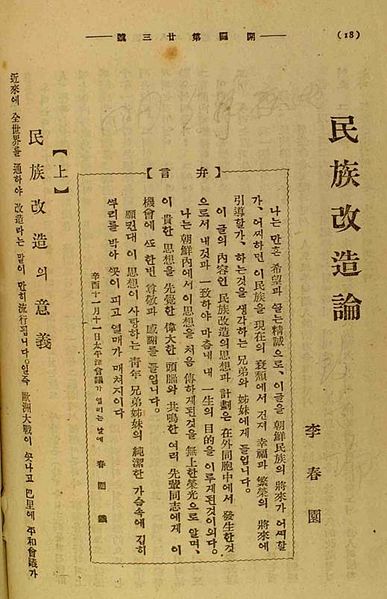 (18)
開闢第廿三號
民族改造論
李春園
【弁言】
나는 만흔 希望과 끌는 精誠으로, 이글을 朝鮮民族의 將來가 어떠할
가, 어찌하면 이民族을 現在의 衰頹에서 건져 幸福과 繁榮의 將來에
引導할가, 하는것을 생각하는 兄弟와 姊妹에게 들입니다.
이 글의 內容인 民族改造의思想과 計劃은 在外同胞中에서 發生한것
으로서 내것과 一致하야 마츰내 내 一生의 目的을 이루게된것이외다.
나는 朝鮮內에서 이思想을 처음 傳하게된것을 無上한榮光으로 알며,
이 貴한 思想을 先覺한 偉大한 頭腦와 共鳴한 여러 先輩同志에게 이
機會에 또한번 尊敬과 感謝를 들입니다.
願컨대 이 思想이 사랑하는 靑年 兄弟姊妹의 純潔한 가슴속에 깁히
뿌리를 박아 꼿이 피고 열매가 매저지이다
辛酉十一月十一日太平洋會議가 열리는날에 春園 識
【上】 民族改造의 意義
近來에 全世界를 通하야 改造라는 말이 만히 流行됩니다. 일즉 歐洲大戰이 끗나고 巴里에 平和會議가